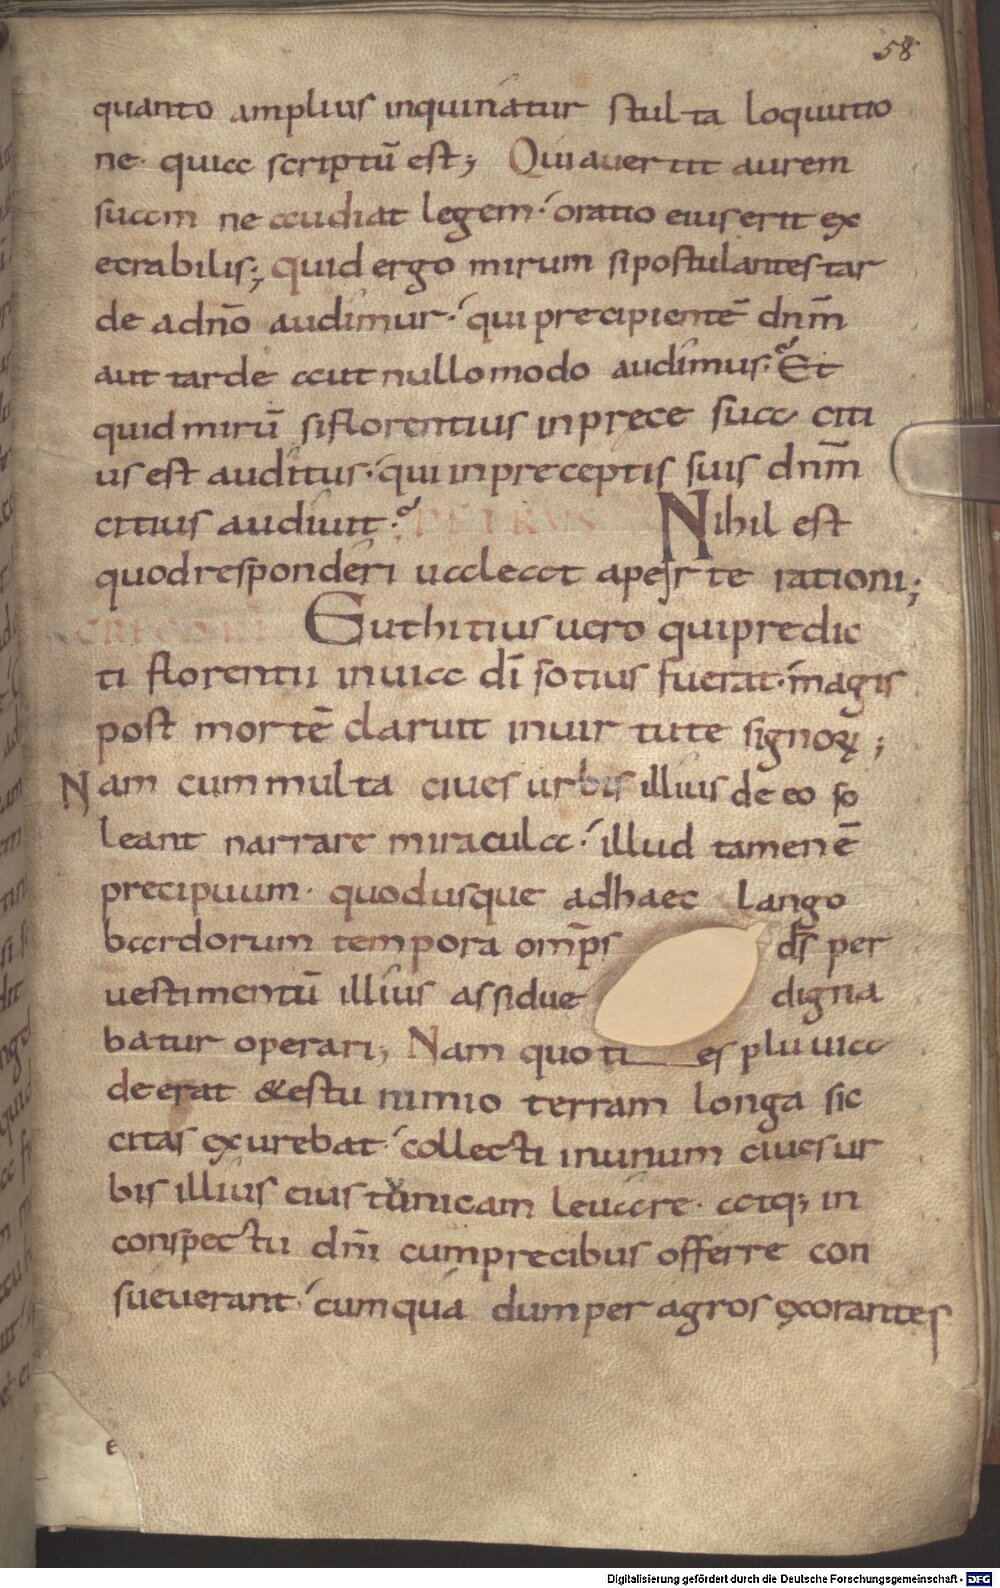 58
quanto amplius inquinatur stulta loquutio
ne. quia scriptū est; Qui avertit aurem
suam ne audiat legem. oratio eius erit ex
ecrabilis; quid ergo mirum si postulantes tar
de a dn̄o audimur. qui precipientē dnm̄
aut tarde aut nullo modo audimus. Et
quid mirū si florentius in prece sua citi
us est auditus. qui in preceptis suis dnm̄
citius audivit. PETRUS Nihil est
quod responderi valeat aperte rationi;
GREGORII Euthitius vero qui predic
ti florentii in via dī sotius fuerat. magis
post mortē claruit in virtute signoꝝ;
Nam cum multa cives urbis illius de eo so
leant narrare miracula. illud tamen ē
precipuum. quod usque ad haec lango
bardorum tempora omp̄s ds̄ per
vestimentū illius assidue digna
batur operari; Nam quoties pluvia
deerat & estu nimio terram longa sic
citas exurebat. collecti in unum cives ur
bis illius eius tunicam levare. atq; in
conspectu dnī cum precibus offerre con
sueverant. cum qua dum per agros exorantes